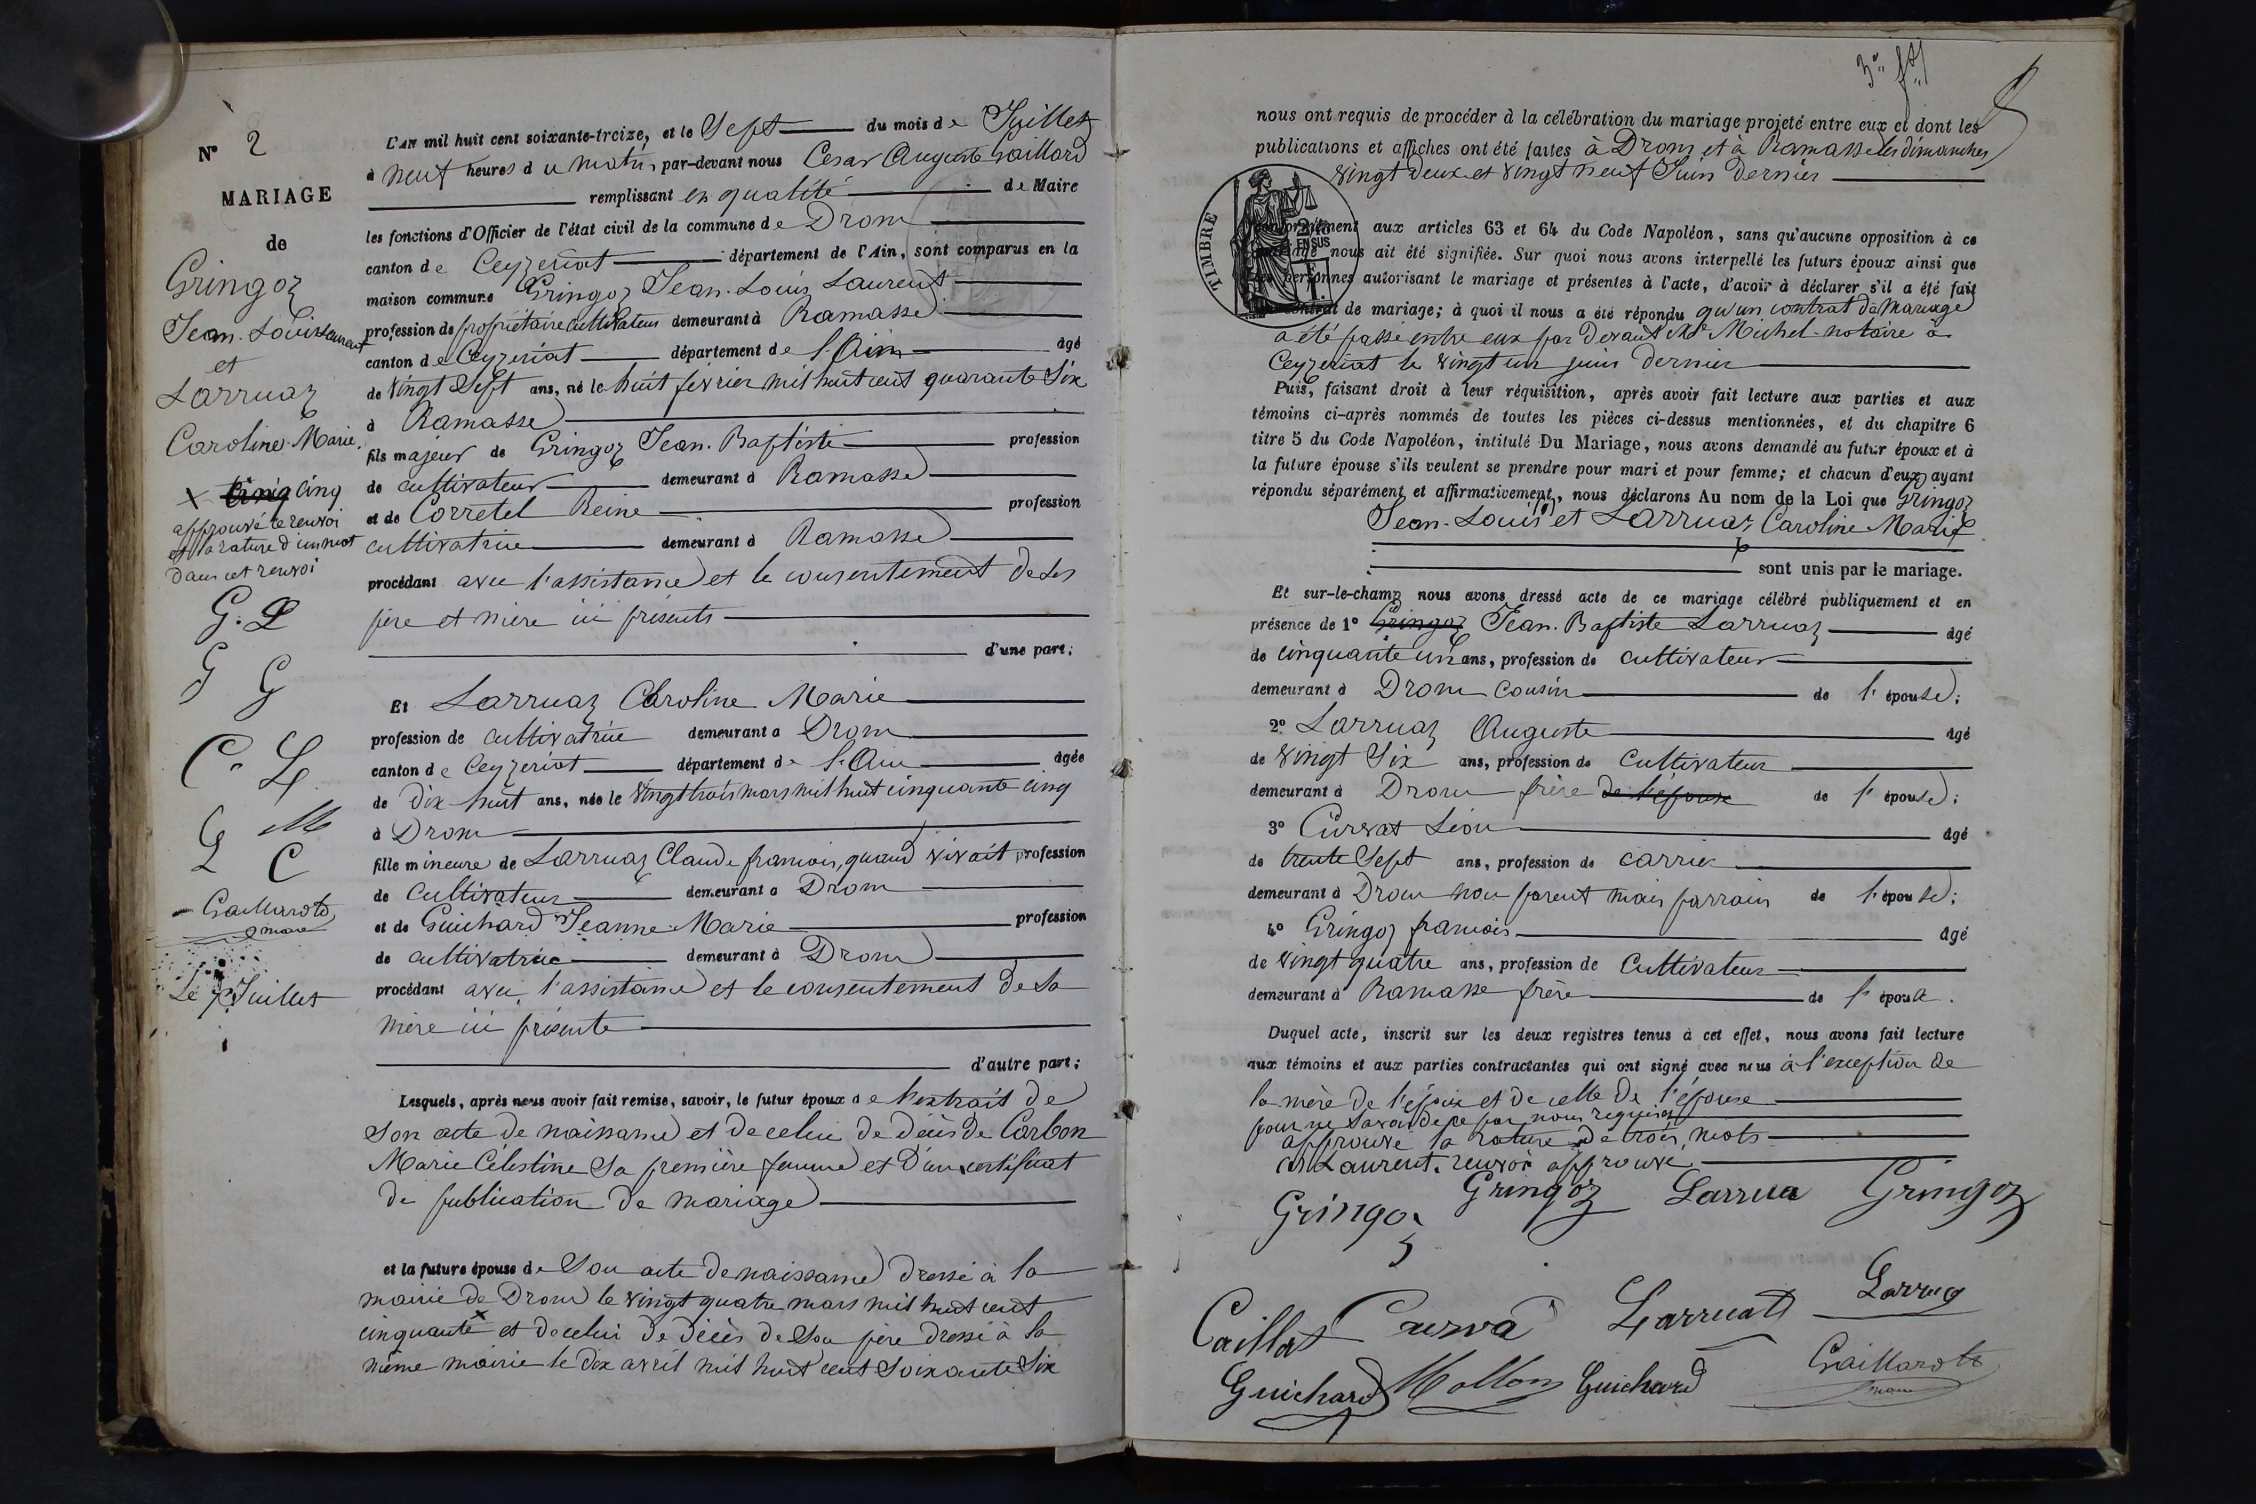 N° 2
MARIAGE
de
Gringoz
Jean-Louis Laurent
et
Larruaz
Caroline-Marie.
x cinq cinq
approuvé le renvoi
et la rature d'un mot
dans cet renvoi
G. L
G G
C. L
G M
L C
Gaillard
maire
Le 7 Juillet
L'AN mil huit cent soixante-treize, et le Sept du mois de Juillet
à neuf heures du matin par-devant nous Cesar Auguste Gaillard
remplissant en qualité de Maire
les fonctions d'Officier de l'état civil de la commune de Drom
canton de Ceyzeriat département de l'Ain, sont comparus en la
maison commune Gringoz Jean-Louis Laurent
profession de propriétaire cultivateur demeurant à Ramasse
canton de Ceyzeriat département de l'Ain âgé
de vingt Sept ans, né le huit février mil huit cent quarante Six
à Ramasse
fils majeur de Gringoz Jean-Baptiste profession
de cultivateur demeurant à Ramasse
et de Corretel Reine profession
cultivatrice demeurant à Ramasse
procédant avec l'assistance et le consentement de ses
père et mère ici présents
d'une part;
Et Larruaz Caroline Marie
profession de cultivatrice demeurant à Drom
canton de Ceyzeriat département de l'Ain âgée
de dix-huit ans, née le vingt trois mars mil huit cinquante cinq
à Drom
fille mineure de Larruaz Claude françois, quand vivait profession
de Cultivateur demeurant à Drom
et de Guichard Jeanne-Marie profession
de cultivatrice demeurant à Drom
procédant avec l'assistance et le consentement de sa
mère ici présente
d'autre part;
Lesquels, après nous avoir fait remise, savoir, le futur époux de l'extrait de
son acte de naissance et de celui de décès de Carbon
Marie Célestine sa première femme et d'un certificat
de publication de mariage
et la future épouse de Son acte de naissance dressé à la
mairie de Drom le vingt quatre mars mil huit cent
cinquante x et de celui de décès de son père dressé à la
même mairie le dix avril mil huit cent soixante Six
3e ft
nous ont requis de procéder à la célébration du mariage projeté entre eux et dont les
publications et affiches ont été faites à Drom et à Ramasse les dimanches
vingt deux et vingt neuf Juin dernier
TIMBRE
2/10
EN SUS
conformément aux articles 63 et 64 du Code Napoléon, sans qu'aucune opposition à ce
mariage nous ait été signifiée. Sur quoi nous avons interpellé les futurs époux ainsi que
les personnes autorisant le mariage et présentes à l'acte, d'avoir à déclarer s'il a été fait
un contrat de mariage; à quoi il nous a été répondu qu'un contrat de Mariage
a été passé entre eux par devant Me Michel notaire à
Ceyzeriat le vingt un juin dernier
Puis, faisant droit à leur réquisition, après avoir fait lecture aux parties et aux
témoins ci-après nommés de toutes les pièces ci-dessus mentionnées, et du chapitre 6
titre 5 du Code Napoléon, intitulé Du Mariage, nous avons demandé au futur époux et à
la future épouse s'ils veulent se prendre pour mari et pour femme; et chacun d'eux ayant
répondu séparément et affirmativement, nous déclarons Au nom de la Loi que Gringoz
Jean-Louis et Larruaz Caroline Marie
sont unis par le mariage.
Et sur-le-champ nous avons dressé acte de ce mariage célébré publiquement et en
présence de 1° Gringoz Jean-Baptiste Larruaz âgé
de cinquante un ans, profession de cultivateur
demeurant à Drom cousin de l'épouse;
2° Larruaz Auguste âgé
de vingt Six ans, profession de cultivateur
demeurant à Drom frère de l'épouse de l'épouse;
3° Curvat Léon âgé
de trente Sept ans, profession de carrier
demeurant à Drom non parent mais parrain de l'épouse;
4° Gringoz francois âgé
de vingt quatre ans, profession de Cultivateur
demeurant à Ramasse frère de l'époux.
Duquel acte, inscrit sur les deux registres tenus à cet effet, nous avons fait lecture
aux témoins et aux parties contractantes qui ont signé avec nous à l'exception de
la mère de l'époux et de celle de l'épouse
pour ne savoir de ce par nous requises
approuvé la rature de trois mots
Laurent. renvoi approuvé
Gringoz Gringoz Larrua Gringoz
Caillat Curva Larruat Larrua
Guichard Mollon Guichard Gaillard
maire